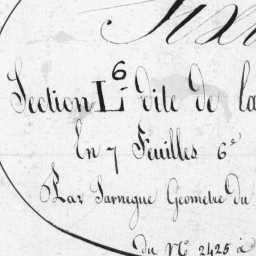 6
Section L dite de la
En 7 Feuilles 6e
Par Jarnegue Geometre du
du No 2425 à